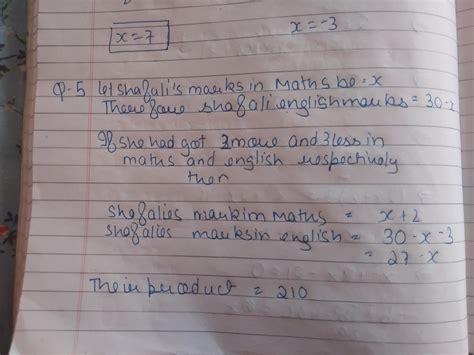 x = 7    x = -3
Q.5 let shafali's marks in Maths be = x
Therefore shafali english marks = 30 - x
If she had got 2 more and 3 less in
maths and english respectively
then
shafalies mark in Maths = x + 2
shafalies marks in english = 30 - x - 3
= 27 - x
Their product = 210